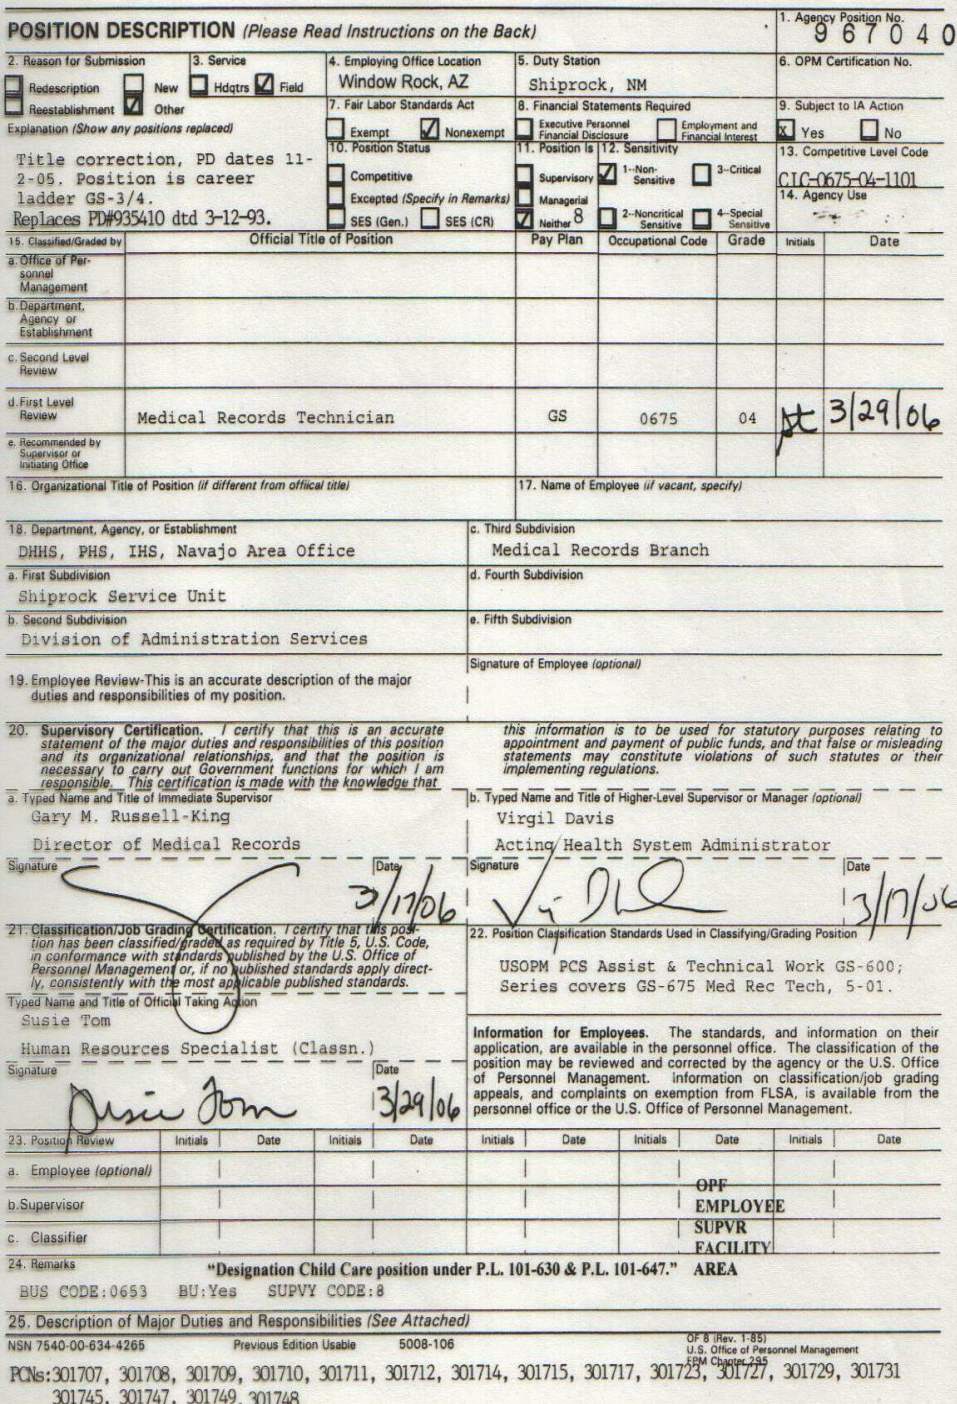 POSITION DESCRIPTION (Please Read Instructions on the Back)
1. Agency Position No.
967040
2. Reason for Submission
Redescription
New
Reestablishment
Other
Explanation (Show any positions replaced)
Title correction, PD dates 11-
2-05. Position is career
ladder GS-3/4.
Replaces PD#935410 dtd 3-12-93.
3. Service
Hdqtrs
Field
4. Employing Office Location
Window Rock, AZ
5. Duty Station
Shiprock, NM
6. OPM Certification No.
7. Fair Labor Standards Act
Exempt
Nonexempt
8. Financial Statements Required
Executive Personnel
Financial Disclosure
Employment and
Financial Interest
9. Subject to IA Action
x Yes
No
10. Position Status
Competitive
Excepted (Specify in Remarks)
SES (Gen.)
SES (CR)
11. Position Is
Supervisory
Managerial
Neither 8
12. Sensitivity
1--Non-
Sensitive
3--Critical
2--Noncritical
Sensitive
4--Special
Sensitive
13. Competitive Level Code
CIC-0675-04-1101
14. Agency Use
15. Classified/Graded by
Official Title of Position
Pay Plan
Occupational Code
Grade
Initials
Date
a. Office of Per-
sonnel
Management
b. Department,
Agency or
Establishment
c. Second Level
Review
d. First Level
Review
Medical Records Technician
GS
0675
04
st
3/29/06
e. Recommended by
Supervisor or
Initiating Office
16. Organizational Title of Position (if different from offiical title)
17. Name of Employee (if vacant, specify)
18. Department, Agency, or Establishment
DHHS, PHS, IHS, Navajo Area Office
c. Third Subdivision
Medical Records Branch
a. First Subdivision
Shiprock Service Unit
d. Fourth Subdivision
b. Second Subdivision
Division of Administration Services
e. Fifth Subdivision
19. Employee Review-This is an accurate description of the major
duties and responsibilities of my position.
Signature of Employee (optional)
20. Supervisory Certification. I certify that this is an accurate
statement of the major duties and responsibilities of this position
and its organizational relationships, and that the position is
necessary to carry out Government functions for which I am
responsible. This certification is made with the knowledge that
this information is to be used for statutory purposes relating to
appointment and payment of public funds, and that false or misleading
statements may constitute violations of such statutes or their
implementing regulations.
a. Typed Name and Title of Immediate Supervisor
Gary M. Russell-King
Director of Medical Records
b. Typed Name and Title of Higher-Level Supervisor or Manager (optional)
Virgil Davis
Acting Health System Administrator
Signature
Date
3/17/06
Signature
Date
3/17/06
21. Classification/Job Grading Certification. I certify that this posi-
tion has been classified/graded as required by Title 5, U.S. Code,
in conformance with standards published by the U.S. Office of
Personnel Management or, if no published standards apply direct-
ly, consistently with the most applicable published standards.
Typed Name and Title of Official Taking Action
Susie Tom
Human Resources Specialist (Classn.)
Signature
Susie Tom
Date
3/29/06
22. Position Classification Standards Used in Classifying/Grading Position
USOPM PCS Assist & Technical Work GS-600;
Series covers GS-675 Med Rec Tech, 5-01.
Information for Employees. The standards, and information on their
application, are available in the personnel office. The classification of the
position may be reviewed and corrected by the agency or the U.S. Office
of Personnel Management. Information on classification/job grading
appeals, and complaints on exemption from FLSA, is available from the
personnel office or the U.S. Office of Personnel Management.
23. Position Review
Initials Date Initials Date Initials Date Initials Date Initials Date
a. Employee (optional)
b. Supervisor
c. Classifier
OPF
EMPLOYEE
SUPVR
FACILITY
AREA
24. Remarks
"Designation Child Care position under P.L. 101-630 & P.L. 101-647."
BUS CODE:0653 BU:Yes SUPVY CODE:8
25. Description of Major Duties and Responsibilities (See Attached)
NSN 7540-00-634-4265
Previous Edition Usable
5008-106
OF 8 (Rev. 1-85)
U.S. Office of Personnel Management
FPM Chapter 295
PCNs:301707, 301708, 301709, 301710, 301711, 301712, 301714, 301715, 301717, 301723, 301727, 301729, 301731
301745, 301747, 301749, 301748